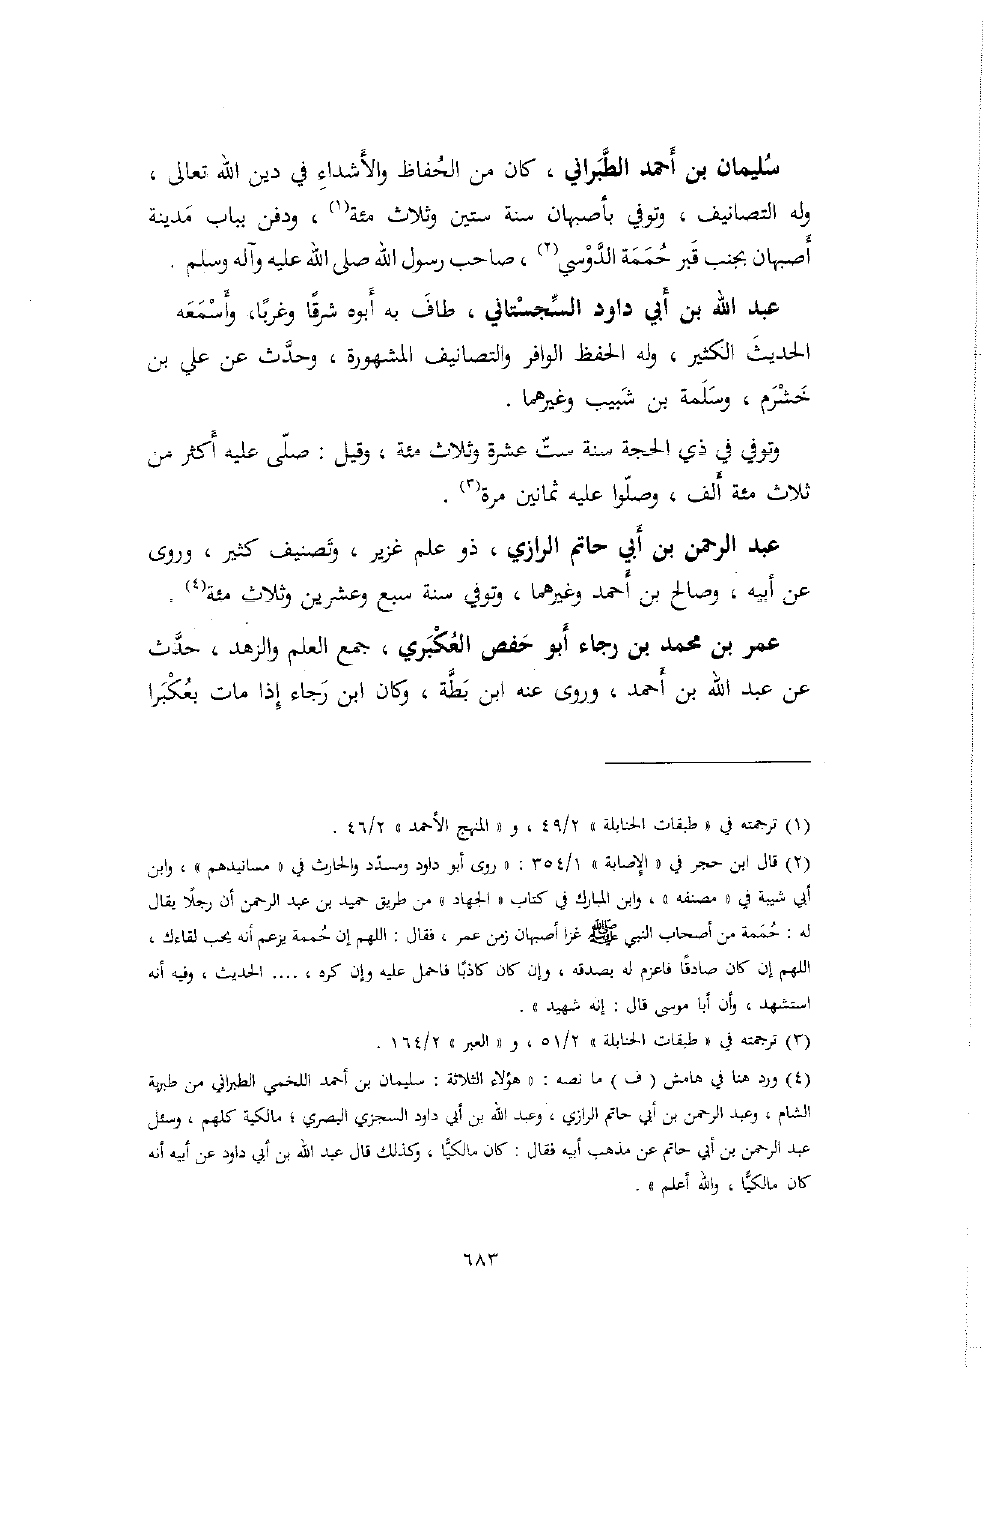 سُليمان بن أَحمد الطَّبَراني ، كان من الحُفاظ والأَشداءِ في دين الله تعالى ،
وله التصانيف ، وتوفي بأَصبهان سنة ستين وثلاث مئة(١) ، ودفن بباب مَدينة
أَصبهان بجنب قَبر حُمَمَة الدَّوْسي(٢) ، صاحب رسول الله صلى الله عليه وآله وسلم .
عبد الله بن أَبي داود السِّجسْتاني ، طافَ به أَبوه شرقًا وغربًا، وأَسْمَعَه
الحديثَ الكثير ، وله الحفظ الوافر والتصانيف المشهورة ، وحدَّث عن علي بن
خَشْرَم ، وسَلَمة بن شَبيب وغيرهما .
وتوفي في ذي الحجة سنة ستّ عشرة وثلاث مئة ، وقيل : صلّى عليه أَكثر من
ثلاث مئة أَلف ، وصلّوا عليه ثمانين مرة(٣) .
عبد الرحمن بن أَبي حاتم الرازي ، ذو علم غزير ، وتَصنيف كثير ، وروى
عن أَبيه ، وصالح بن أَحمد وغيرهما ، وتوفي سنة سبع وعشرين وثلاث مئة(٤) .
عمر بن محمد بن رجاء أَبو حَفص العُكْبَري ، جمع العلم والزهد ، حدَّث
عن عبد الله بن أَحمد ، وروى عنه ابن بَطَّة ، وكان ابن رَجاء إِذا مات بعُكْبَرا
(١) ترجمته في « طبقات الحنابلة » ٤٩/٢ ، و « المنهج الأحمد » ٤٦/٢ .
(٢) قال ابن حجر في « الإصابة » ٣٥٤/١ : « روى أبو داود ومسدّد والحارث في « مسانيدهم » ، وابن
أبي شيبة في « مصنفه » ، وابن المبارك في كتاب « الجهاد » من طريق حميد بن عبد الرحمن أن رجلًا يقال
له : حُمَمة من أصحاب النبي ﷺ غزا أصبهان زمن عمر ، فقال : اللهم إن حُممة يزعم أنه يحب لقاءك ،
اللهم إن كان صادقًا فاعزم له بصدقه ، وإن كان كاذبًا فاحمل عليه وإن كره ، .... الحديث ، وفيه أنه
استشهد ، وأن أبا موسى قال : إنه شهيد » .
(٣) ترجمته في « طبقات الحنابلة » ٥١/٢ ، و « العبر » ١٦٤/٢ .
(٤) ورد هنا في هامش ( ف ) ما نصه : « هؤلاء الثلاثة : سليمان بن أحمد اللخمي الطبراني من طبرية
الشام ، وعبد الرحمن بن أبي حاتم الرازي ، وعبد الله بن أبي داود السجزي البصري ؛ مالكية كلهم ، وسئل
عبد الرحمن بن أبي حاتم عن مذهب أبيه فقال : كان مالكيًّا ، وكذلك قال عبد الله بن أبي داود عن أبيه أنه
كان مالكيًّا ، والله أعلم » .
٦٨٣